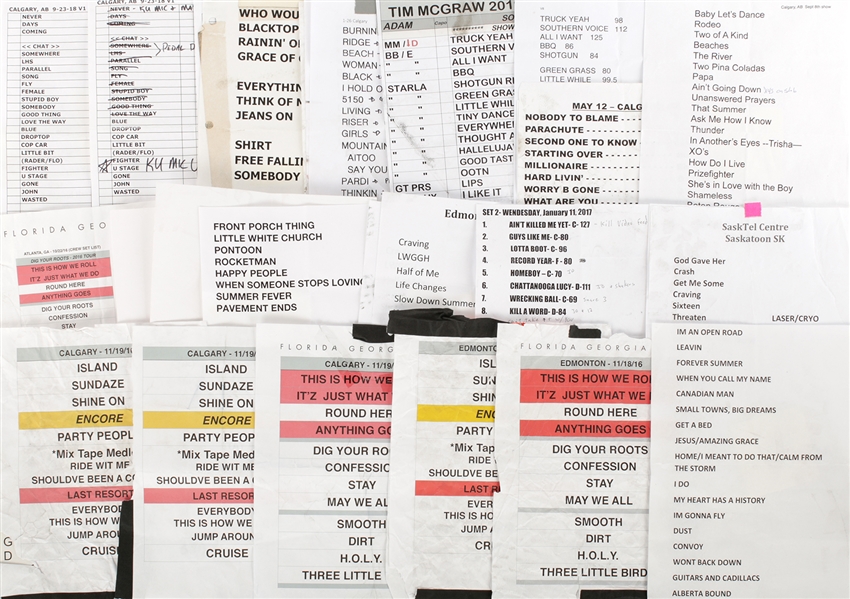 CALGARY, AB 9-23-18 V1
NEVER
DAYS
COMING
<< CHAT >>
SOMEWHERE
LHS
PARALLEL
SONG
FLY
FEMALE
STUPID BOY
SOMEBODY
GOOD THING
LOVE THE WAY
BLUE
DROPTOP
COP CAR
LITTLE BIT
(RADER/FLO)
FIGHTER
U STAGE
GONE
JOHN
WASTED
CALGARY, AB 9-23-18 V1
NEVER - KU MIC
DAYS
COMING
<< CHAT >>
SOMEWHERE
LHS
PARALLEL
SONG
FLY
FEMALE
STUPID BOY
SOMEBODY
GOOD THING
LOVE THE WAY
BLUE
DROPTOP
COP CAR
LITTLE BIT
(RADER/FLO)
FIGHTER
U STAGE KU MIC
GONE
JOHN
WASTED
WHO WOU
BLACKTOP
RAININ' O
GRACE OF
EVERYTHIN
THINK OF N
JEANS ON
SHIRT
FREE FALLIN
SOMEBODY
BURNIN
RIDGE
BEACH
WOMAN
BLACK
I HOLD O
5150
LIVING
RISER
GIRLS
MOUNTAIN
AITOO
SAY YOU
PARDI
THINKIN
TIM MCGRAW 201
ADAM
SHOW
MM / ID
BB / E
STARLA
GT PRS
TRUCK YEAH
SOUTHERN VOICE
ALL I WANT
BBQ
SHOTGUN RI
GREEN GRAS
LITTLE WHILE
TINY DANCE
EVERYWHE
THOUGHT A
HALLELUJAH
GOOD TAST
OOTN
LIPS
I LIKE IT
TRUCK YEAH 98
SOUTHERN VOICE 112
ALL I WANT 125
BBQ 86
SHOTGUN 84
GREEN GRASS 80
LITTLE WHILE 99.5
MAY 12 – CALG
NOBODY TO BLAME
PARACHUTE
SECOND ONE TO KNOW
STARTING OVER
MILLIONAIRE
HARD LIVIN'
WORRY B GONE
WHAT ARE YOU
Calgary, AB Sept 8th show
Baby Let's Dance
Rodeo
Two of A Kind
Beaches
The River
Two Pina Coladas
Papa
Ain't Going Down
Unanswered Prayers
That Summer
Ask Me How I Know
Thunder
In Another's Eyes --Trisha---
XO's
How Do I Live
Prizefighter
She's in Love with the Boy
Shameless
FLORIDA GEO
ATLANTA, GA - 10/20/16 (CREW SET LIST)
DIG YOUR ROOTS - 2016 TOUR
THIS IS HOW WE ROLL
IT'Z JUST WHAT WE DO
ROUND HERE
ANYTHING GOES
DIG YOUR ROOTS
CONFESSION
STAY
FRONT PORCH THING
LITTLE WHITE CHURCH
PONTOON
ROCKETMAN
HAPPY PEOPLE
WHEN SOMEONE STOPS LOVING
SUMMER FEVER
PAVEMENT ENDS
Edmo
Craving
LWGGH
Half of Me
Life Changes
Slow Down Summer
SET 2- WENDESDAY, January 11, 2017
1. AIN'T KILLED ME YET- C-127
2. GUYS LIKE ME- C-80
3. LOTTA BOOT- C- 96
4. RECORD YEAR- F - 80
5. HOMEBOY – C -70
6. CHATTANOOGA LUCY- D-111
7. WRECKING BALL- C-69
8. KILL A WORD- D-84
SaskTel Centre
Saskatoon SK
God Gave Her
Crash
Get Me Some
Craving
Sixteen
Threaten LASER/CRYO
CALGARY - 11/19/1
ISLAND
SUNDAZE
SHINE ON
ENCORE
PARTY PEOPL
*Mix Tape Medl
RIDE WIT ME
SHOULDVE BEEN A CO
LAST RESORT
EVERYBODY
THIS IS HOW WE
JUMP AROUN
CRUISE
G
D
CALGARY - 11/19/
ISLAND
SUNDAZE
SHINE ON
ENCORE
PARTY PEOP
*Mix Tape Med
RIDE WIT M
SHOULDVE BEEN A
LAST RESOR
EVERYBOD
THIS IS HOW W
JUMP AROU
CRUISE
FLORIDA GEORG
CALGARY - 11/19/16
THIS IS HOW WE
IT'Z JUST WHAT
ROUND HER
ANYTHING GO
DIG YOUR ROO
CONFESSION
STAY
MAY WE ALL
SMOOTH
DIRT
H.O.L.Y.
THREE LITTLE
EDMONTON
ISL
SUND
SHIN
ENC
PARTY
*Mix Tap
RIDE
SHOULDVE BE
LAST R
EVER
THIS IS HO
JUMP A
CRU
FLORIDA GEORGIA
EDMONTON - 11/18/16
THIS IS HOW WE ROL
IT'Z JUST WHAT WE
ROUND HERE
ANYTHING GOES
DIG YOUR ROOTS
CONFESSION
STAY
MAY WE ALL
SMOOTH
DIRT
H.O.L.Y.
THREE LITTLE BIRD
IM AN OPEN ROAD
LEAVIN
FOREVER SUMMER
WHEN YOU CALL MY NAME
CANADIAN MAN
SMALL TOWNS, BIG DREAMS
GET A BED
JESUS/AMAZING GRACE
HOME/I MEANT TO DO THAT/CALM FROM
THE STORM
I DO
MY HEART HAS A HISTORY
IM GONNA FLY
DUST
CONVOY
WONT BACK DOWN
GUITARS AND CADILLACS
ALBERTA BOUND